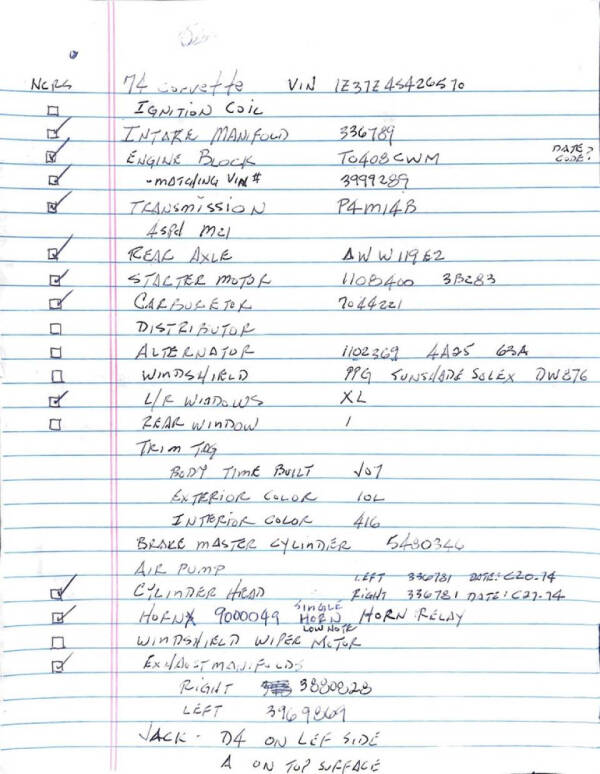 NCRS 74 Corvette VIN 1Z37Z4S426570
IGNITION COIL
INTAKE MANIFOLD 336789
ENGINE BLOCK T0408CWM DATE? CODE?
-MATCHING VIN# 3999289
TRANSMISSION P4M14B
4SPD M21
REAR AXLE AW W119E2
STARTER MOTOR 1108400 3B283
CARBURETOR 7044221
DISTRIBUTOR
ALTERNATOR 1102369 4A25 63A
WINDSHIELD PPG SUNSHADE SOLEX DW876
L/R WINDOWS XL
REAR WINDOW 1
TRIM TAG
BODY TIME BUILT J07
EXTERIOR COLOR 10L
INTERIOR COLOR 416
BRAKE MASTER CYLINDER 5480346
AIR PUMP
CYLINDER HEAD LEFT 336781 DATE: C20-74
RIGHT 336781 DATE: C27-74
HORN 9000049 SINGLE HORN LOW NOTE HORN RELAY
WINDSHIELD WIPER MOTOR
EXHAUST MANIFOLDS
RIGHT 3880828
LEFT 3969869
JACK - D4 ON LEF SIDE
A ON TOP SURFACE